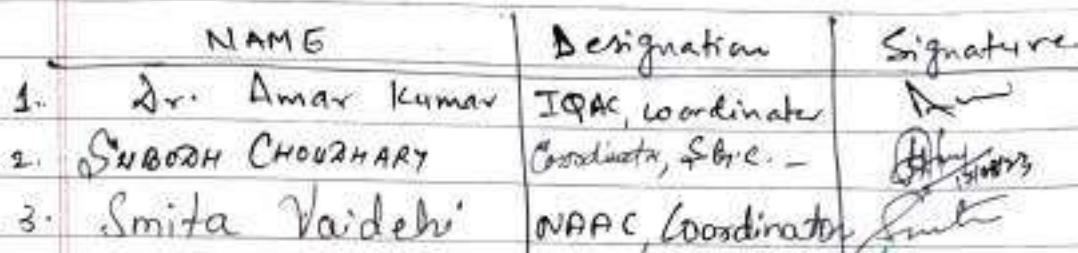 NAME Designation Signature
1. Dr. Amar Kumar IQAC, coordinator
2. SUBODH CHOUDHARY Coordinator,
3. Smita Vaidehi NAAC, Coordinator